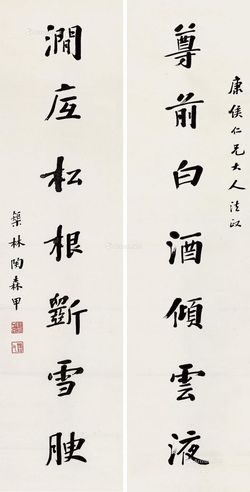 康侯仁兄大人法政
尊前白酒傾雲液
澗底松根斸雪腴
榘林陶森甲